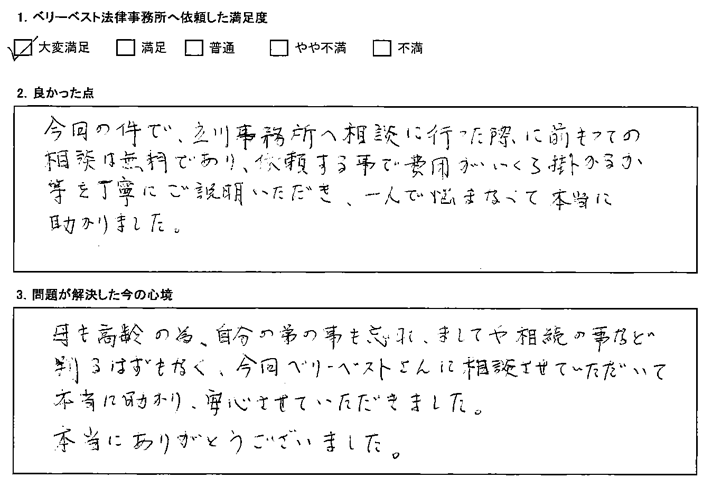 1. ベリーベスト法律事務所へ依頼した満足度
大変満足 満足 普通 やや不満 不満
2. 良かった点
今回の件で、立川事務所へ相談に行った際に前もっての
相談は無料であり、依頼する事で費用がいくら掛かるか
等を丁寧にご説明いただき、一人で悩まなくて本当に
助かりました。
3. 問題が解決した今の心境
母も高齢の為、自分の弟の事も忘れ、ましてや相続の事など
判るはずもなく、今回ベリーベストさんに相談させていただいて
本当に助かり、安心させていただきました。
本当にありがとうございました。